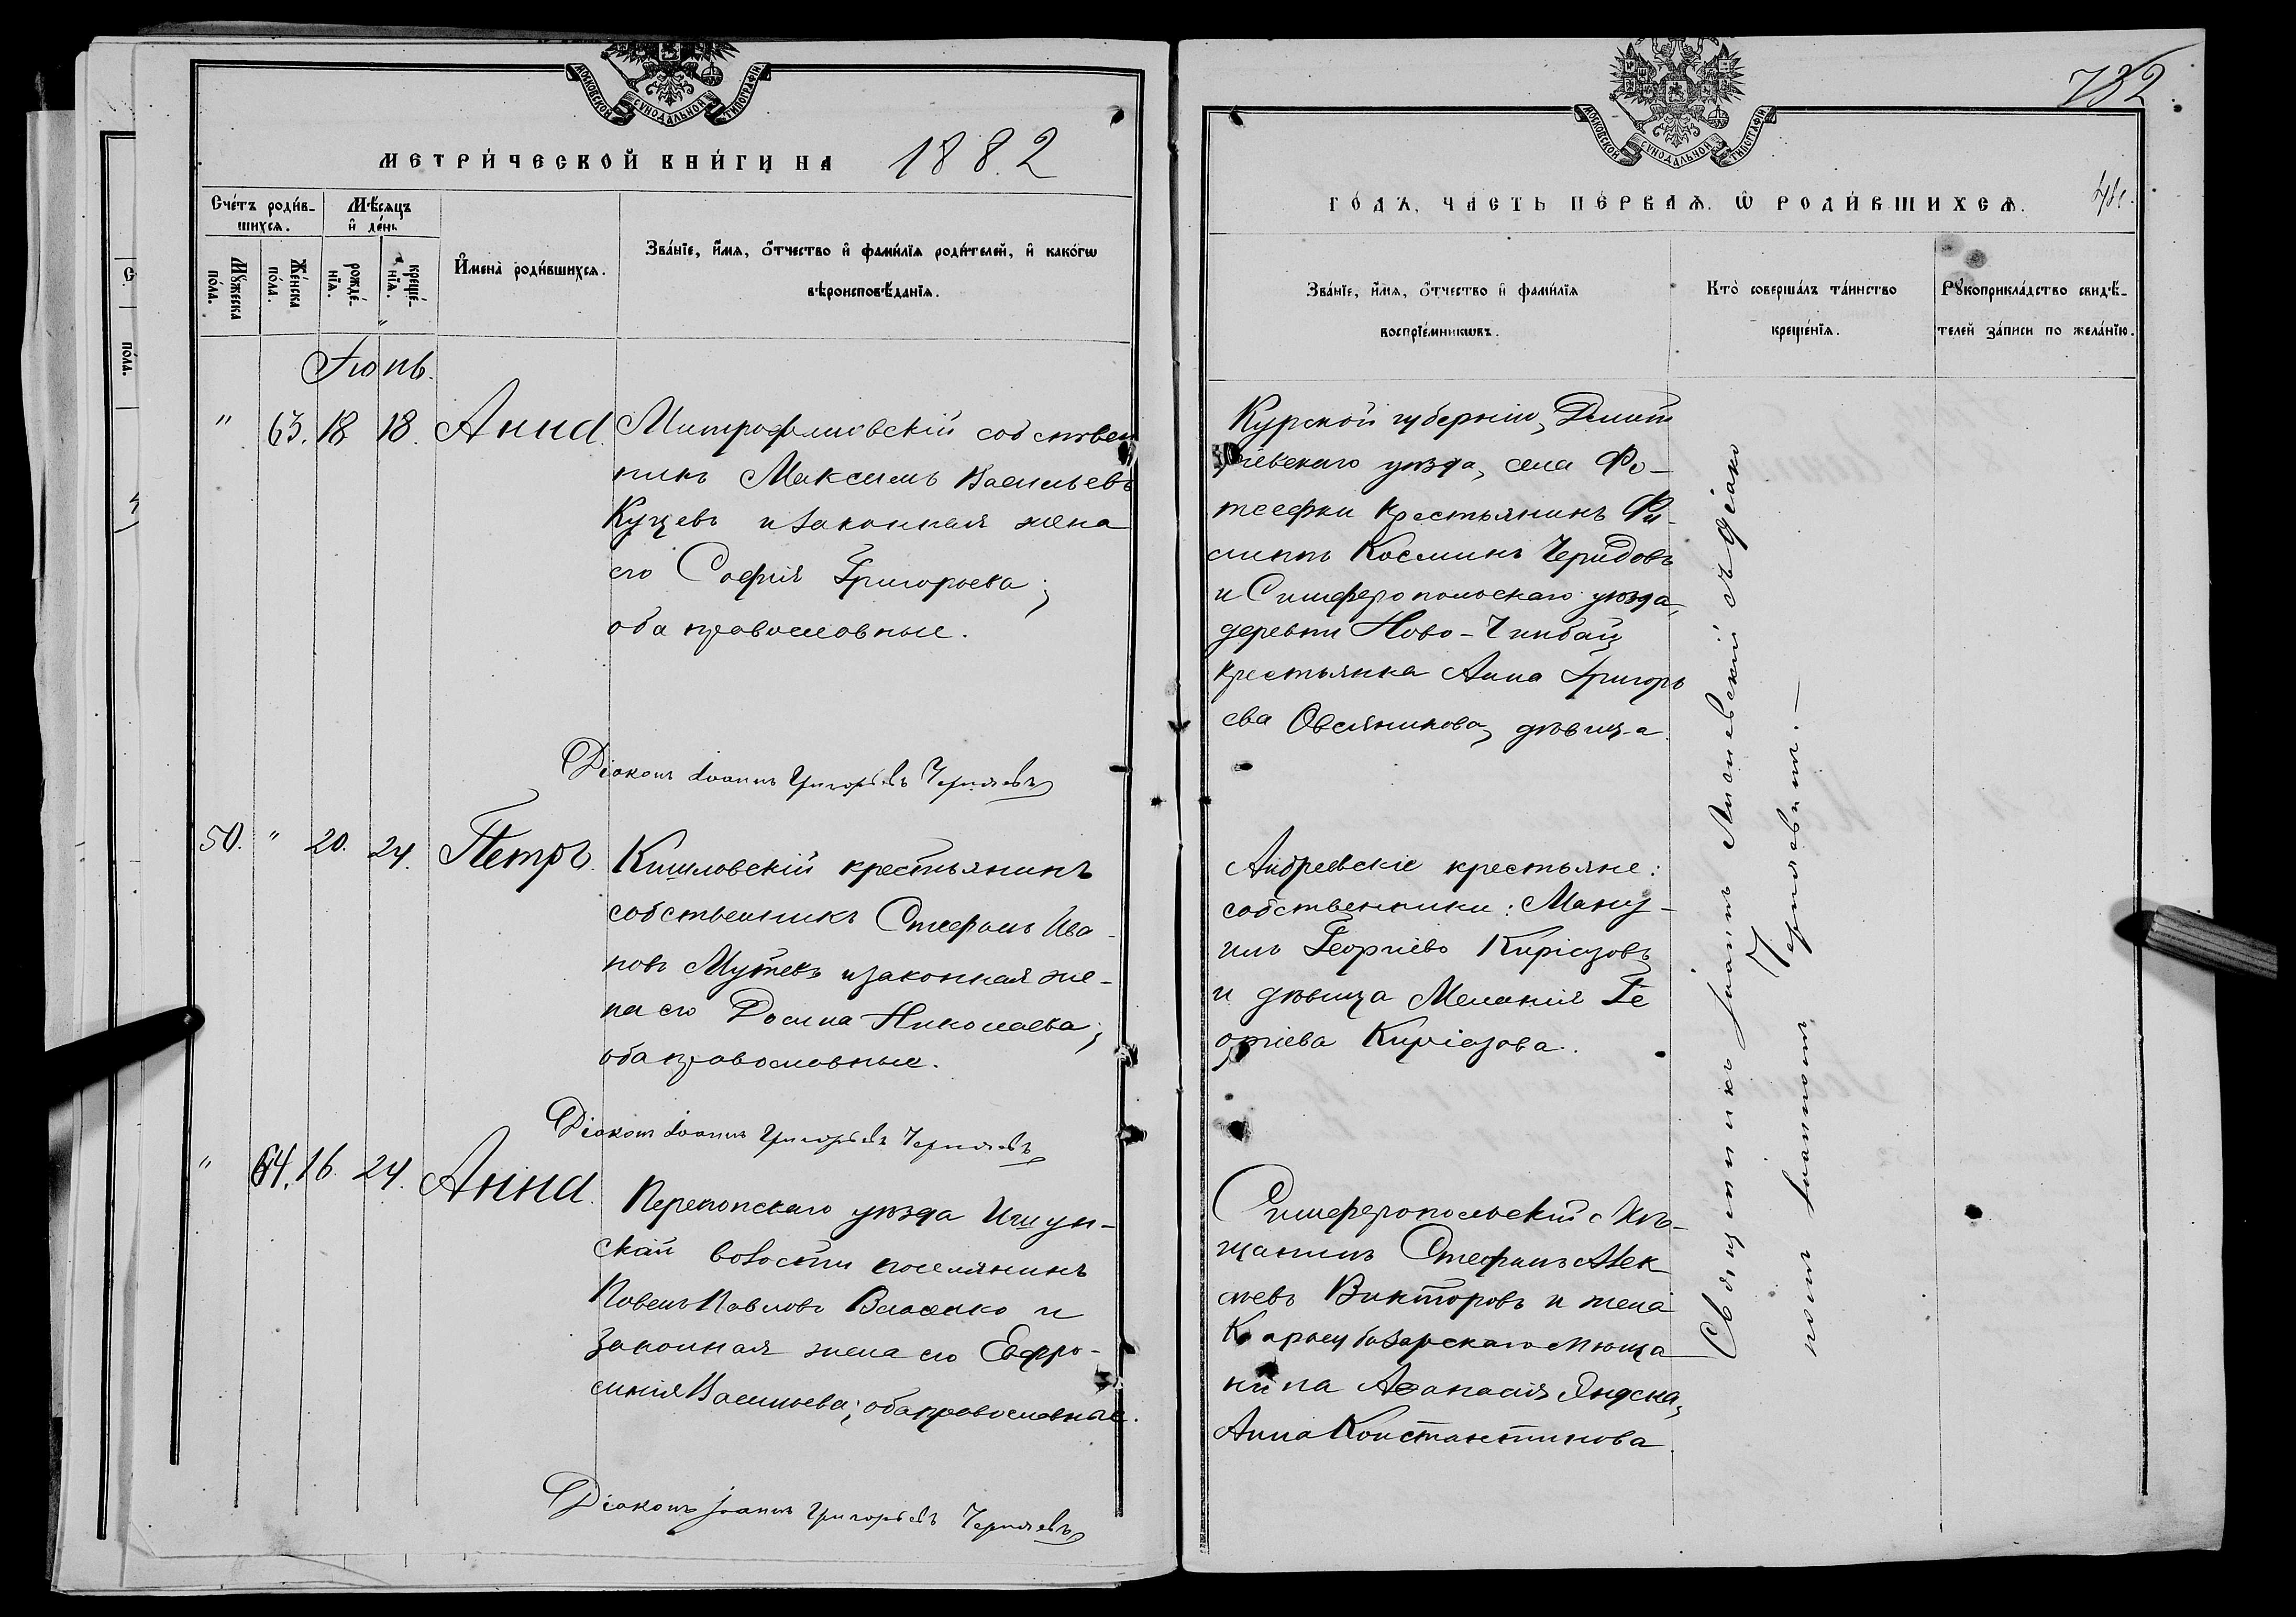 МОСКОВСКОЙ СѴНОДАЛЬНОЙ ТИПОГРАФІИ
МЕТРИ́ЧЕСКОЙ КНИ́ГИ НА 1882
Сче́тъ роди́в-
шихсѧ.
Мѣ́сѧцъ
и҆ де́нь
Мꙋ́жеска
по́ла.
Же́нска
по́ла.
рожде́-
нїѧ.
креще́-
нїѧ.
И҆мена̀ роди́вшихсѧ.
Зва́нїе, и҆́мѧ, ѻ҆́тчество и҆ фами́лїѧ роди́телей, и҆ како́гѡ
вѣроисповѣ́данїѧ.
Іюнь.
" 63. 18 18. Анна.
Митрофановскій собствен
никъ Максимъ Васильевъ
Куцевъ и законная жена
его Софія Григорьева;
оба православные.
Діаконъ Іоаннъ Григорьевъ Чернявъ
50. " 20. 24. Петръ.
Кишловскій крестьянинъ
собственникъ Стефанъ Ива-
новъ Мутевъ и законная же-
на его Домна Николаева;
оба православные.
Діаконъ Іоаннъ Григорьевъ Чернявъ
" 64. 16. 24. Анна.
Перекопскаго уѣзда Ишун-
ской волости поселянинъ
Павелъ Павловъ и
законная жена его Евфро-
синія Васильева; оба православные.
Діаконъ Іоаннъ Григорьевъ Чернявъ
732
МОСКОВСКОЙ СѴНОДАЛЬНОЙ ТИПОГРАФІИ
ГО́ДЪ, ЧА́СТЬ ПЕ́РВАѦ, Ѡ҆ РОДИ́ВШИХСѦ.
Зва́нїе, и҆́мѧ, ѻ҆́тчество и҆ фами́лїѧ
воспрїе́мникѡвъ.
Кто̀ соверша́лъ та́инство
креще́нїѧ.
Рꙋкоприкла́дство свидѣ́-
телей за́писи по жела́нїю.
Курской губерніи, Дмит
ріевскаго уѣзда, села Фа-
теефки крестьянинъ Фи-
липпъ Космин Черидовъ
и Симферопольскаго уѣзда,
деревни Ново-Чинбай
крестьянка Анна Григорь
ева Овсяникова, дѣвица.
Андреевскіе крестьяне:
собственники:Ману-
илъ Георгіевъ Киріазовъ
и дѣвица Меланія Ге
оргіева Киріазова.
Симферопольскій Мѣ-
щанинъ Стефанъ Алек
сѣевъ Викторовъ и жена
Карасубазарскаго мѣща
нина Афанасія
Анна Константинова
Священникъ Іоаннъ съ Діако
номъ Іоанномъ Чернявымъ.—